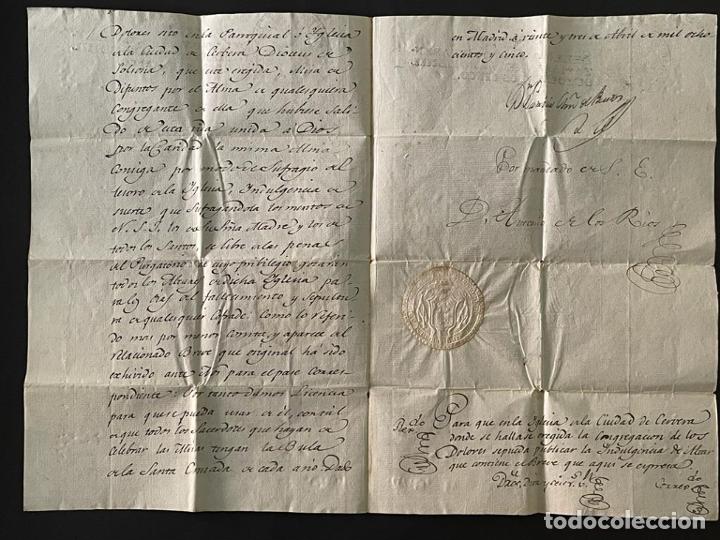 Dolores sito en la Parroquial ó Yglesia
de la Ciudad de Cerbera Diocesis de
Solsona, que este erigida, Misa de
Difuntos por el Alma de qualesquiera
Congregante de ella que hubiese sali-
do de esta vida unida à Dios
por la Caridad la misma Alma
consiga por modo de Sufragio del
tesoro de la Yglesia, Indulgencia de
suerte que sufragandola los meritos de
N. S. J. los de su SSma Madre y los de
todos los Santos, se libre de las penas
del Purgatorio: de cuyo privilegio gozaran
todos los Altares de dicha Yglesia pa-
ra los dias del fallecimiento y sepultu-
ra de qualesquier Cofrade: como lo referi-
do mas por menor consta, y aparece del
relacionado Breve que original há sido
exhivido ante Nos para el pase corres-
pondiente: Por tanto damos Licencia
para que se pueda usar de él, con tál
de que todos los Sacerdotes que hayan de
celebrar las Misas tengan la Bula
de la Santa Cruzada de cada año. Dado
en Madrid à veinte y tres de Abril de mil ocho
cientos y cinco.
Por mandado de S. E.
D. de los Rios
Para que en la Yglesia de la Ciudad de Cervera
donde se halla erigida la Congregacion de los
Dolores se pueda publicar la Indulgencia de Altar
que contiene el Breve que aqui se expresa
Correxdo
todocoleccion.net